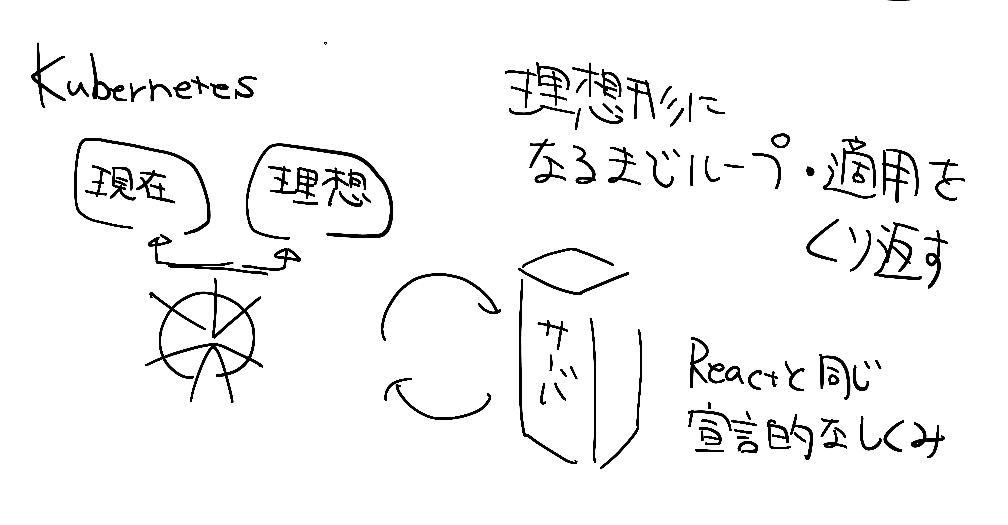 Kubernetes
現在
理想
理想形に
なるまでループ・適用を
くり返す
サーバ
Reactと同じ
宣言的なしくみ